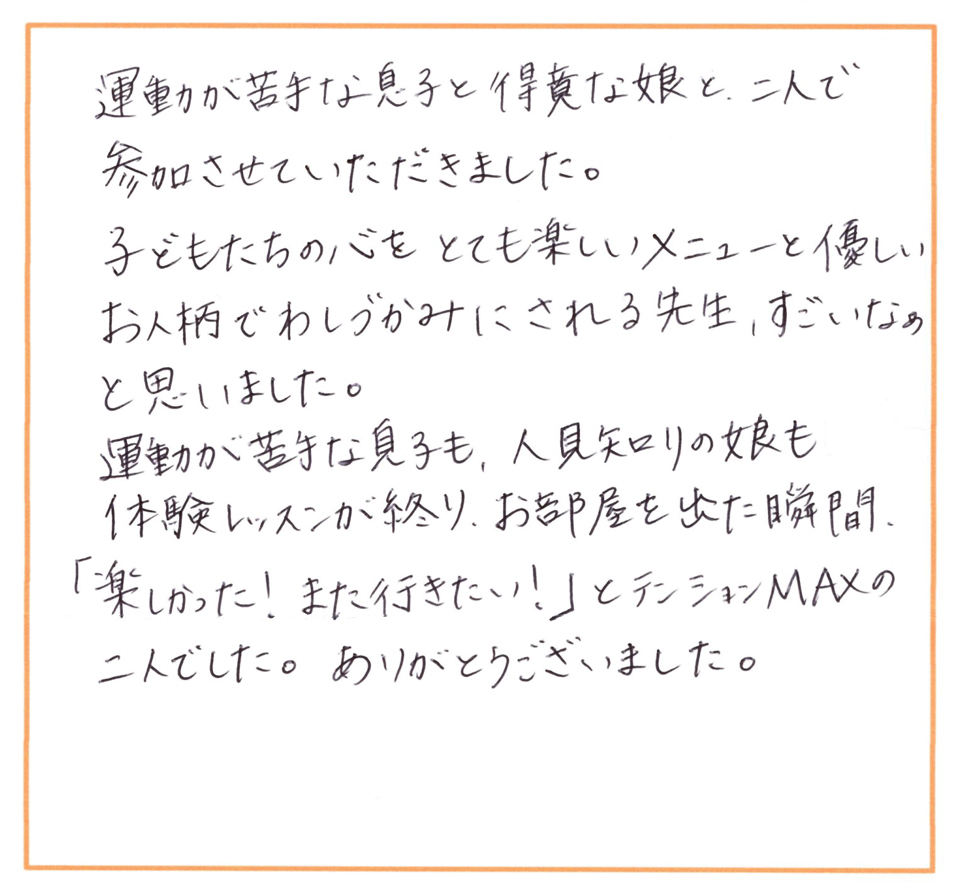 運動が苦手な息子と得意な娘と、二人で
参加させていただきました。
子どもたちの心を とても楽しいメニューと優しい
お人柄でわしづかみにされる先生、すごいなぁ
と思いました。
運動が苦手な息子も、人見知りの娘も
体験レッスンが終り、お部屋を出た瞬間、
「楽しかった！また行きたい！」とテンションMAXの
二人でした。ありがとうございました。